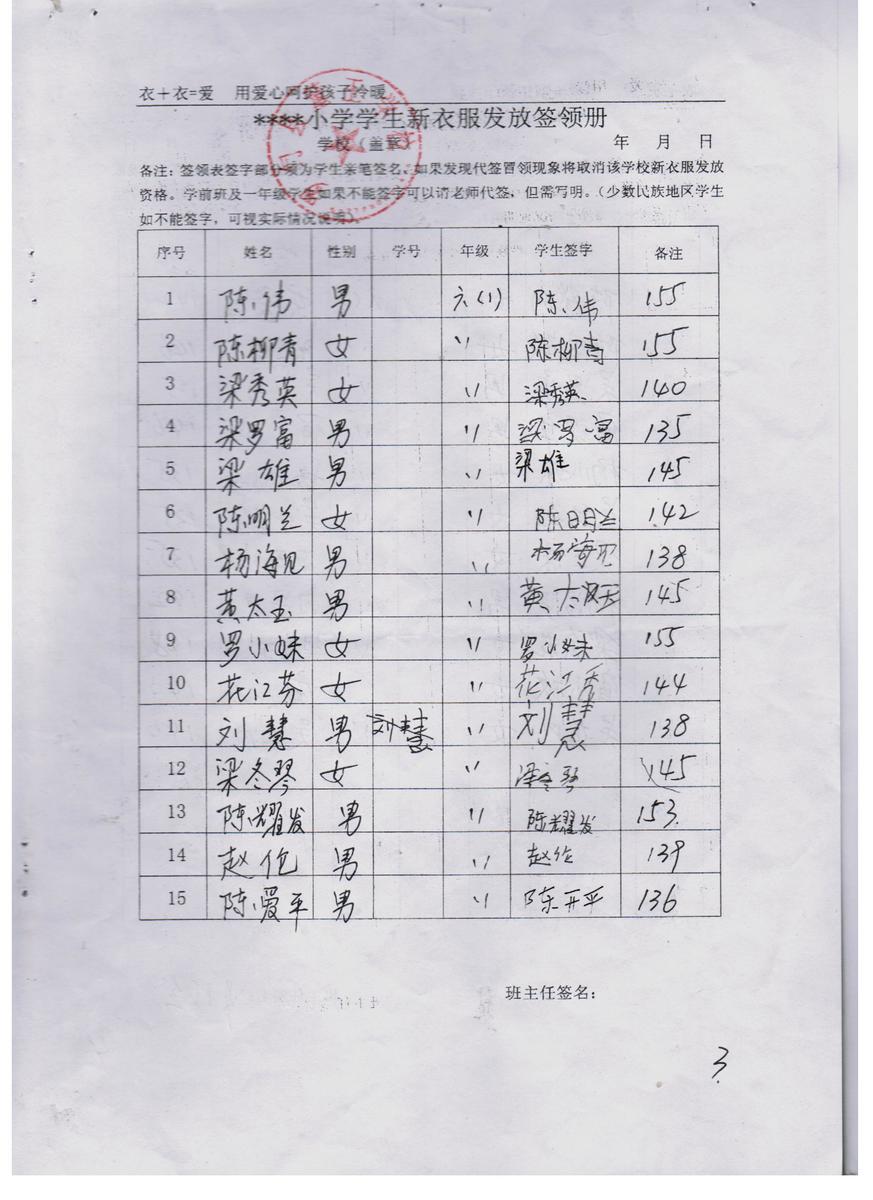 衣+衣=爱 用爱心呵护孩子冷暖
****小学学生新衣服发放签领册
学校(盖章) 年 月 日
备注：签领表签字部分须为学生亲笔签名，如果发现代签冒领现象将取消该学校新衣服发放
资格。学前班及一年级学生如果不能签字可以请老师代签，但需写明。（少数民族地区学生
如不能签字，可视实际情况说明）
序号 姓名 性别 学号 年级 学生签字 备注
1 陈伟 男 六(1) 陈伟 155
2 陈柳青 女 〃 陈柳青 155
3 梁秀英 女 〃 梁秀英 140
4 梁罗富 男 〃 梁罗富 135
5 梁雄 男 〃 梁雄 145
6 陈明兰 女 〃 陈明兰 142
7 杨海见 男 〃 杨海见 138
8 黄太玉 男 〃 黄太 145
9 罗小妹 女 〃 罗小妹 155
10 花江芬 女 〃 花江秀 144
11 刘慧 男 刘慧 〃 刘慧 138
12 梁冬琴 女 〃 梁冬琴 145
13 陈耀发 男 〃 陈耀发 153
14 赵伦 男 〃 赵伦 139
15 陈爱平 男 〃 陈开平 136
班主任签名：
3